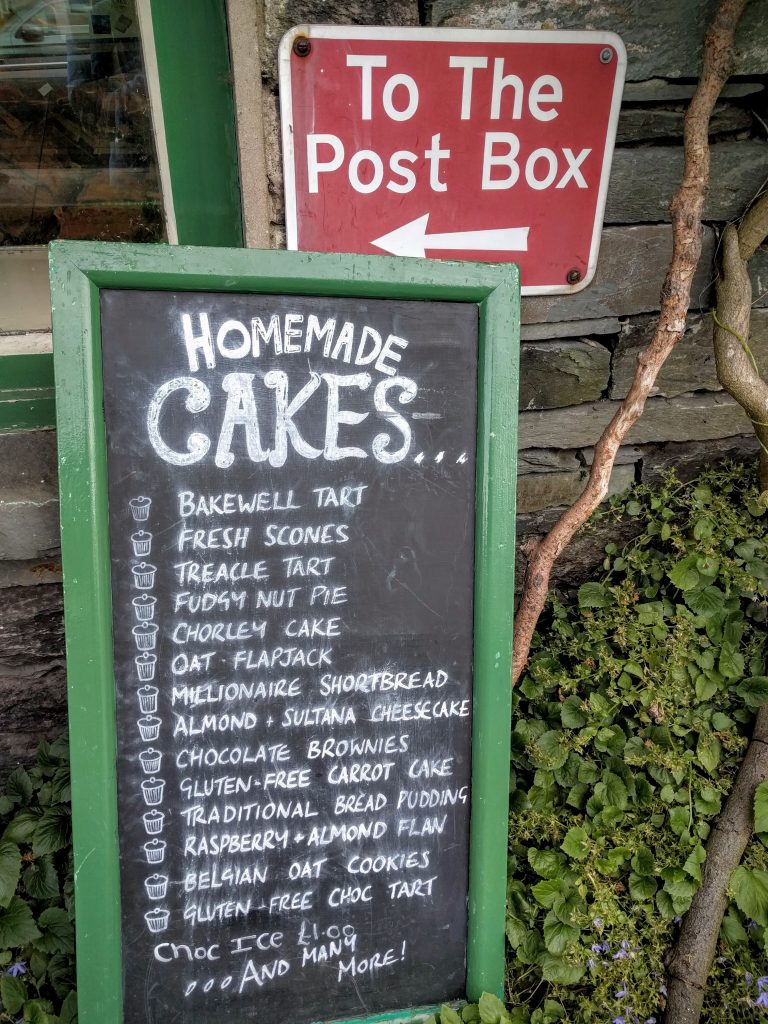 To The
Post Box
HOMEMADE
CAKES...
BAKEWELL TART
FRESH SCONES
TREACLE TART
FUDGY NUT PIE
CHORLEY CAKE
OAT FLAPJACK
MILLIONAIRE SHORTBREAD
ALMOND + SULTANA CHEESECAKE
CHOCOLATE BROWNIES
GLUTEN-FREE CARROT CAKE
TRADITIONAL BREAD PUDDING
RASPBERRY + ALMOND FLAN
BELGIAN OAT COOKIES
GLUTEN-FREE CHOC TART
Choc Ice £1.00
...AND MANY
MORE!